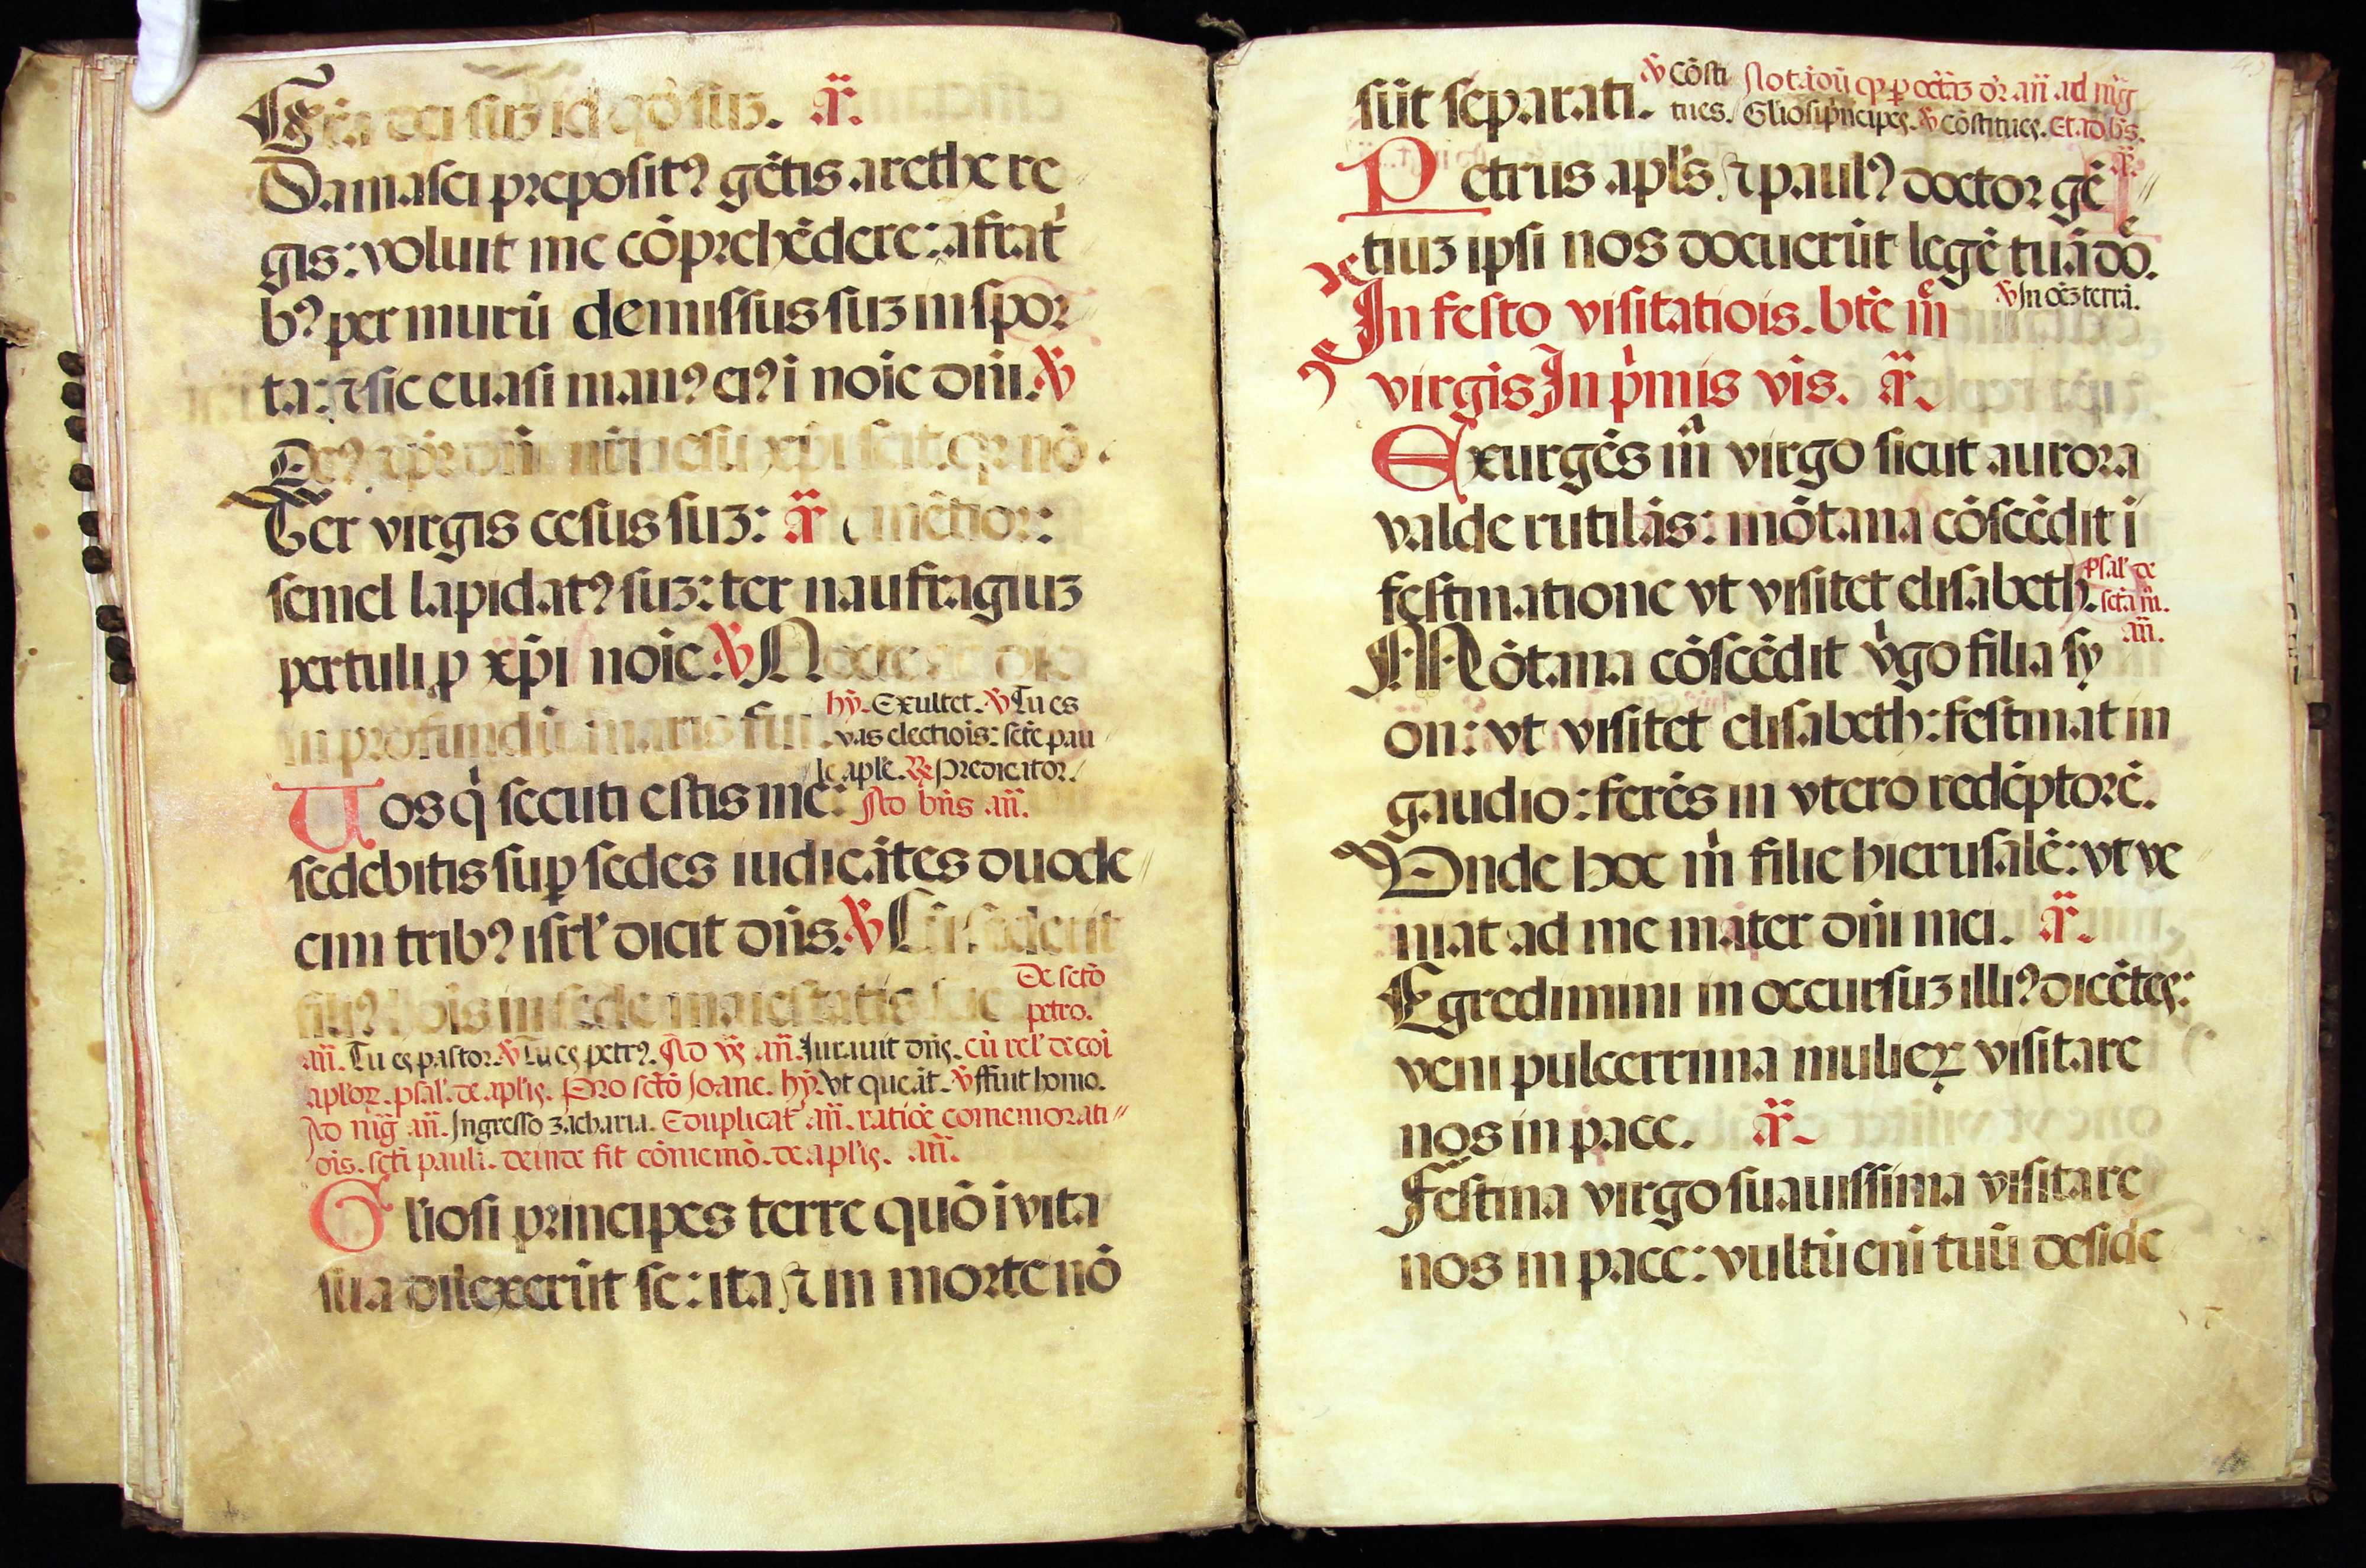 Gr̄a dei suꝫ id qđ suꝫ. añ.
Damasci preposit⁹ gētis arethe re
gis: voluit me cōprehēdere: a frat̉
b⁹ per murū demissus suꝫ in spor
ta: ⁊ sic euasi man⁹ ei⁹ ī noīe dñi. ℣
De⁹ ⁊ p̄r dñi nr̄i iesu xp̄i scit qꝛ nō
Ter virgis cesus suꝫ: añ mētior:
semel lapidat⁹ suꝫ: ter naufragiuꝫ
pertuli ꝓ xp̄i noīe. ℣ Nocte ac die
in profundū maris fui. hỹ. Exultet. ℣ Tu es
vas electiōis: sctē pau
le aplē. ℟ Predicator.
Uos q̇ secuti estis me: Ad bñs añ.
sedebitis suꝑ sedes iudicātes duode
cim trib⁹ isrl̓ dicit dñs. ℣ Cū sederit
fili⁹ hoīs in sede maiestatis sue De sctō
petro.
añ. Tu es pastor. ℣ Tu es petr⁹. Ad vꝭ añ. Iurauit dñs. cū rel̓ de coī
apl̓oꝝ. psal̓. de apl̓is. Pro sctō Joane. hỹ. Vt queāt. ℣ ffuit homo.
Ad mḡ añ. Ingresso zacharia. Eduplicat̉ añ. ratiōe comemorati
ōis. scti pauli. deinde fit cōmemō. de apl̓is. añ.
Gl̓iosi principes terre quō ī vita
sua dilexerūt se: ita ⁊ in morte nō
sūt separati. ℣ Cōsti Nōtādū qꝫ ꝑ octāꝫ dr̄ añ ad mḡ
tues. Gl̓iosi prīcipes. ℣ Cōstitues. Et ad bñs.
añ.
Petrus apl̓s ⁊ paul⁹ doctor gē
tiuꝫ ipsi nos docuerūt legē tuā dō.
℣ In oēꝫ terrā.
In festo visitatiois. btē mē
virgīs In p̓mis vis. añ.
Exurgēs m̃ virgo sicut aurora
valde rutilās: mōtana cōscēdit ī
festinatione vt visitet elisabeth. psal̓ de
sctā m̃.
añ.
Mōtana cōscēdit v̓go filia sy
on: vt visitet elisabeth: festinat in
gaudio: ferēs in vtero redēptorē.
Vnde hoc m̓ filie hierusalē: vt ve
niat ad me mater dñi mei. añ.
Egredimini in occursuꝫ illi⁹ dicētes:
veni pulcerrima mulieꝝ visitare
nos in pace. añ.
Festina virgo suauissima visitare
nos in pace: vultū enī tuū deside